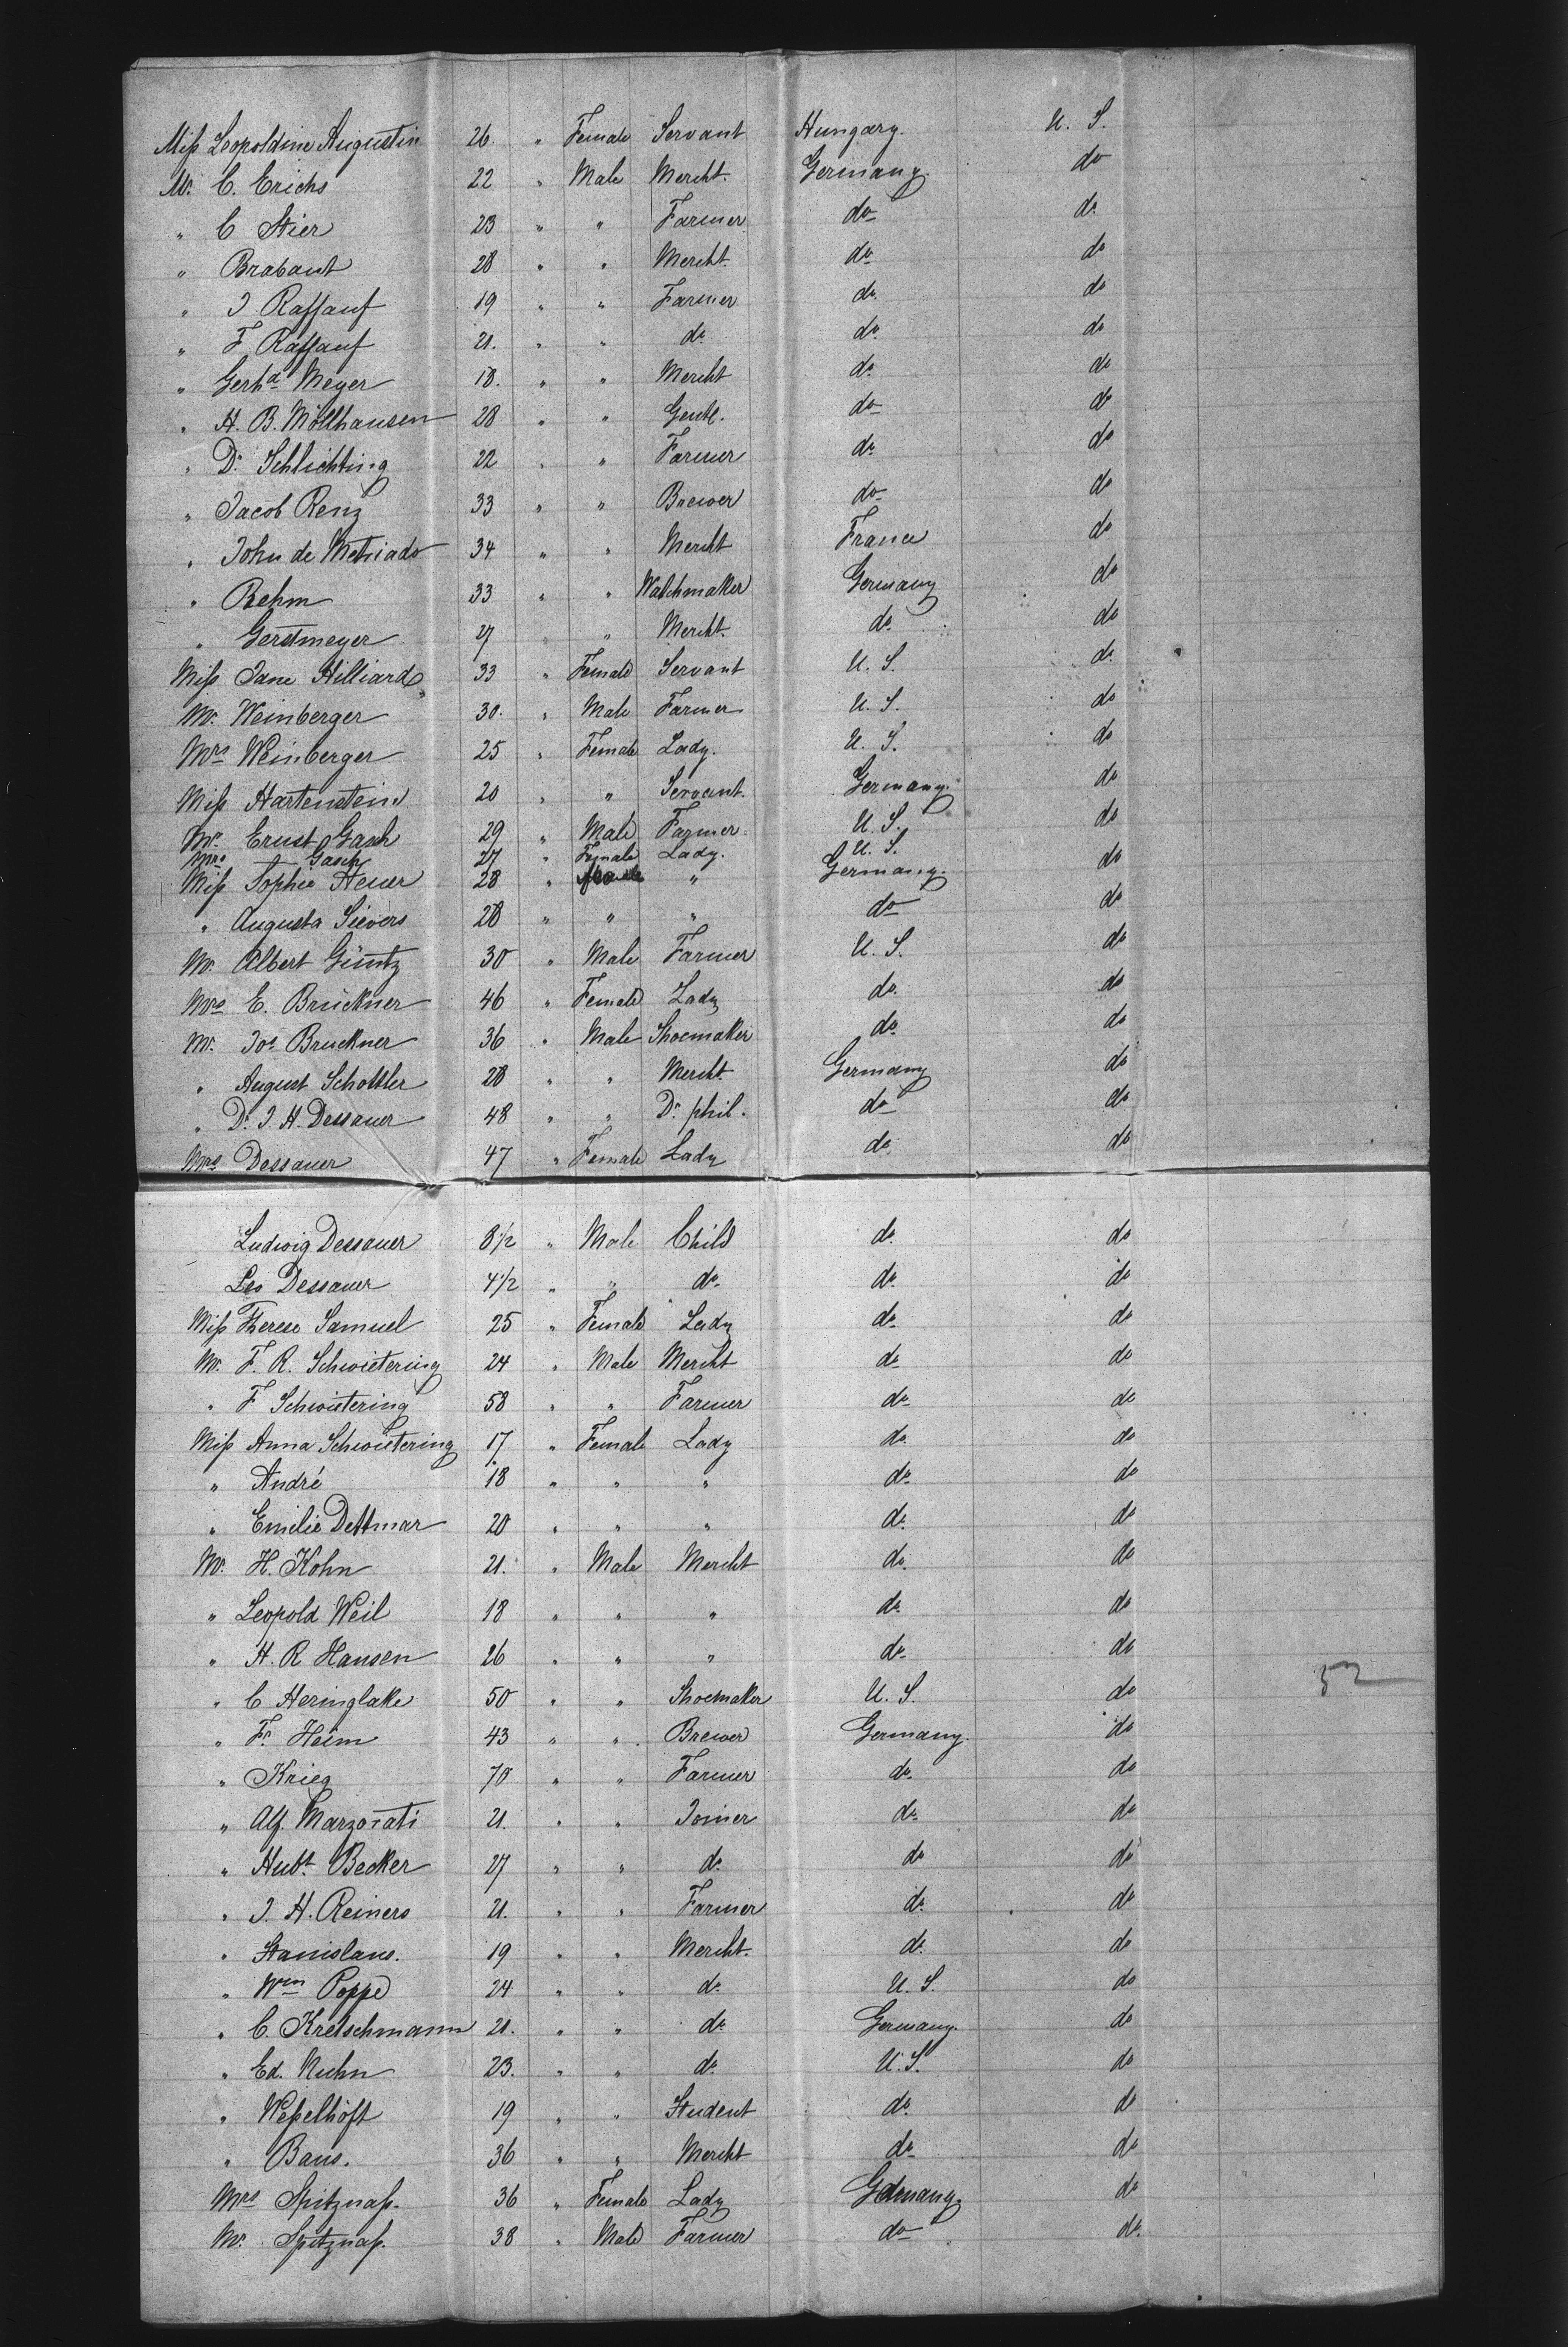 Miſs Leopoldine Augustin 26. " Female Servant Hungary. U. S.
Mr. C. Erichs 22 " Male Mercht. Germany. do
" C Stier 23 " " Farmer do do
" Brabant 28 " " Mercht. do do
" J. Raffauf 19 " " Farmer do. do
" F. Raffauf 21. " " do do. do
" Gerhd. Meyer 18. " " Mercht do. do
" H. B. Möllhausen 28 " " Gentl. do do
" Dr. Schlichting 22 " " Farmer do. do
" Jacob Renz 33 " " Brewer do do
" John de 34 " " Mercht France do
" Rehm 33 " " Watchmaker Germany do
" Gerstmeyer 27 " " Mercht. do. do
Miſs Jane Hilliard 33 " Female Servant U. S. do.
Mr. Weinberger 30. " Male Farmer U. S. do
Mrs Weinberger 25 " Female Lady. U. S. do
Miſs Hartenstein 20 " " Servant. Germany. do
Mr. Ernst Gasch 29 " Male Farmer U. S. do
Mrs Gasch 27 " Female Lady. U. S.
Miſs Sophie Heuer 28 " " Germany. do
" Augusta Sievers 28 " " " do do
Mr. Albert Güntz 30 " Male Farmer U. S. do
Mrs E. Brückner 46 " Female Lady do. do
Mr. Jos Bruckner 36 " Male Shoemaker do. do
" August Schottler 28 " " Mercht. Germany do
" Dr. J. H. Dessauer 48 " " Dr. phil. do do
Mrs Dessauer 47 " Female Lady do. do
Ludwig Dessauer 8 1/2 " Male Child do. do
Leo Dessauer 4 1/2 " " do do. do
Miſs Therese Samuel 25 " Female Lady do do
Mr. F. R. Schwietering 24 " Male Mercht do do
" F Schwietering 58 " " Farmer do do
Miſs Anna Schwietering 17 " Female Lady do. do
" André 18 " " " do do
" Emilie Dettmar 20 " " " do. do
Mr. H. Kohn 21. " Male Mercht do. do
" Leopold Weil 18 " " " do. do
" H. R Hansen 26 " " " do do
" C Heringlake 50 " " Shoemaker U. S. do 52
" Fr. Heim 43 " " Brewer Germany. do
" Krieg 70 " " Farmer do. do
" Alf. Marzorati 21. " " Joiner do. do
" Hubt. Becker 27 " " do. do do
" J. H. Reiners 21. " " Farmer do. do
" Stanislaus. 19 " " Mercht. do. do
" Wm Poppe 24 " " do. U. S. do
" C. Kretschmann 21. " " do. Germany. do
" Ed. Kuhn 23. " " do. U. S. do
" Weſselhöft 19 " " Student do. do
" Baus. 36 " " Mercht do do
Mrs Spitznaſs. 36 " Female Lady Germany. do
Mr. Spitznaſs. 38 " Male Farmer do do.